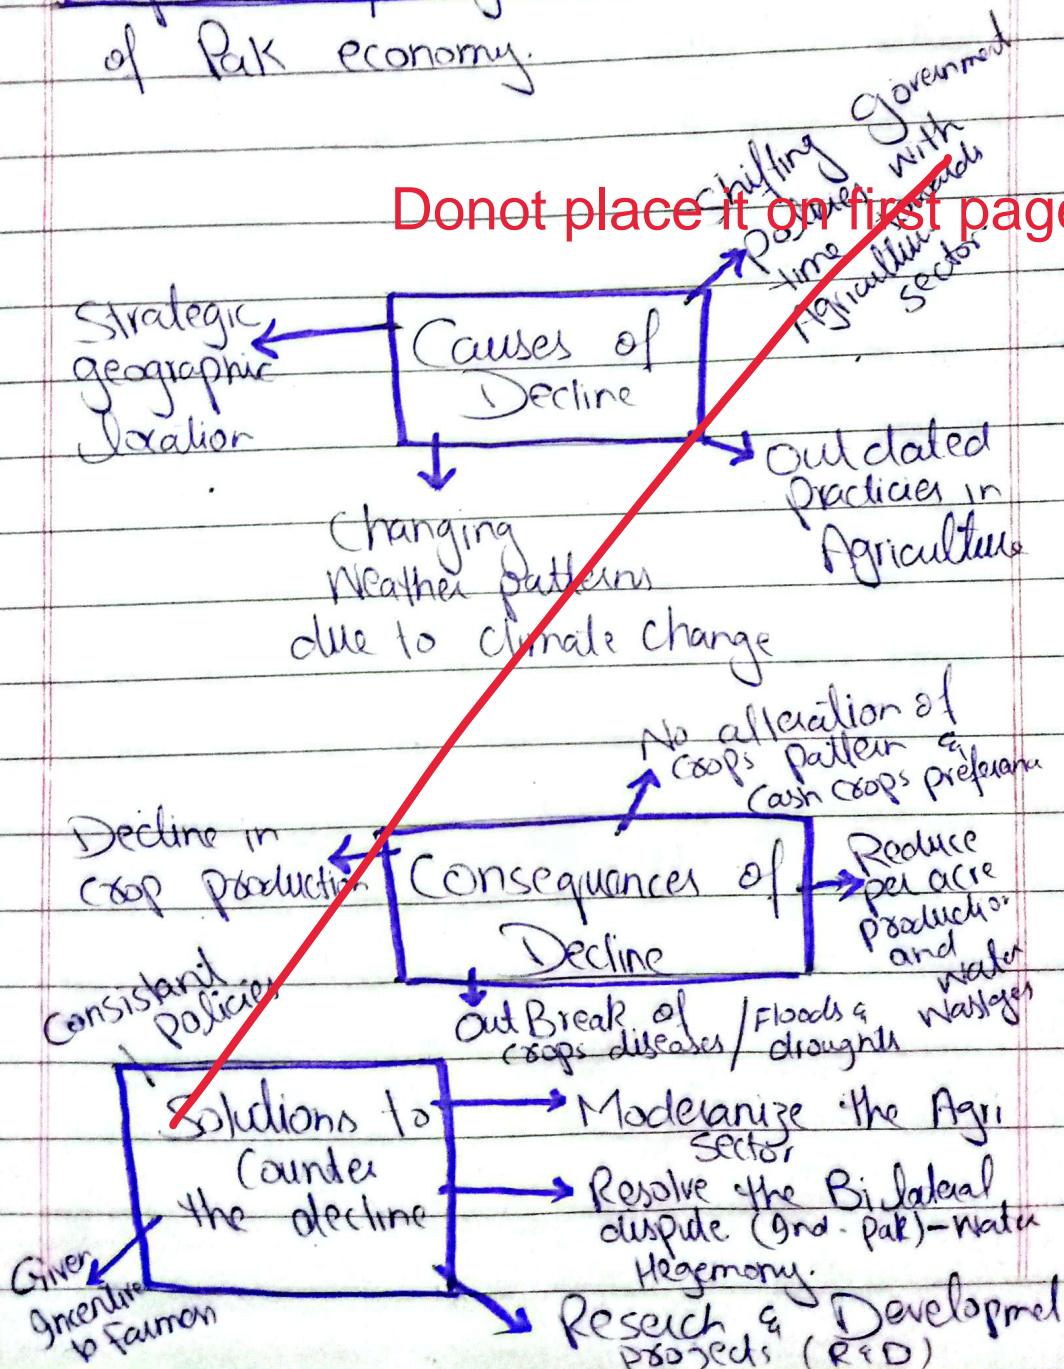 of Pak economy.
Shifting Government
policies with
time towards
Agriculture
sector.
Donot place it on first page
Strategic
geographic
location
Causes of
Decline
Outdated
practicies in
Agriculture
Changing
Weather patterns
due to climate change
No alteration of
crops pattern &
Cash crops preferance
Decline in
crop production
Consequances of
Decline
Reduce
per acre
production
and
water
wastges
Out Break of
crops diseases / Floods &
droughts
Consistant
policies
Solutions to
Counter
the decline
Moderanize the Agri
Sector
Resolve the Bilateral
dispute (Ind-Pak)-Water
Hegemony.
Given
Incentive
to Farmers
Reserch & Developmet
projects (R&D)